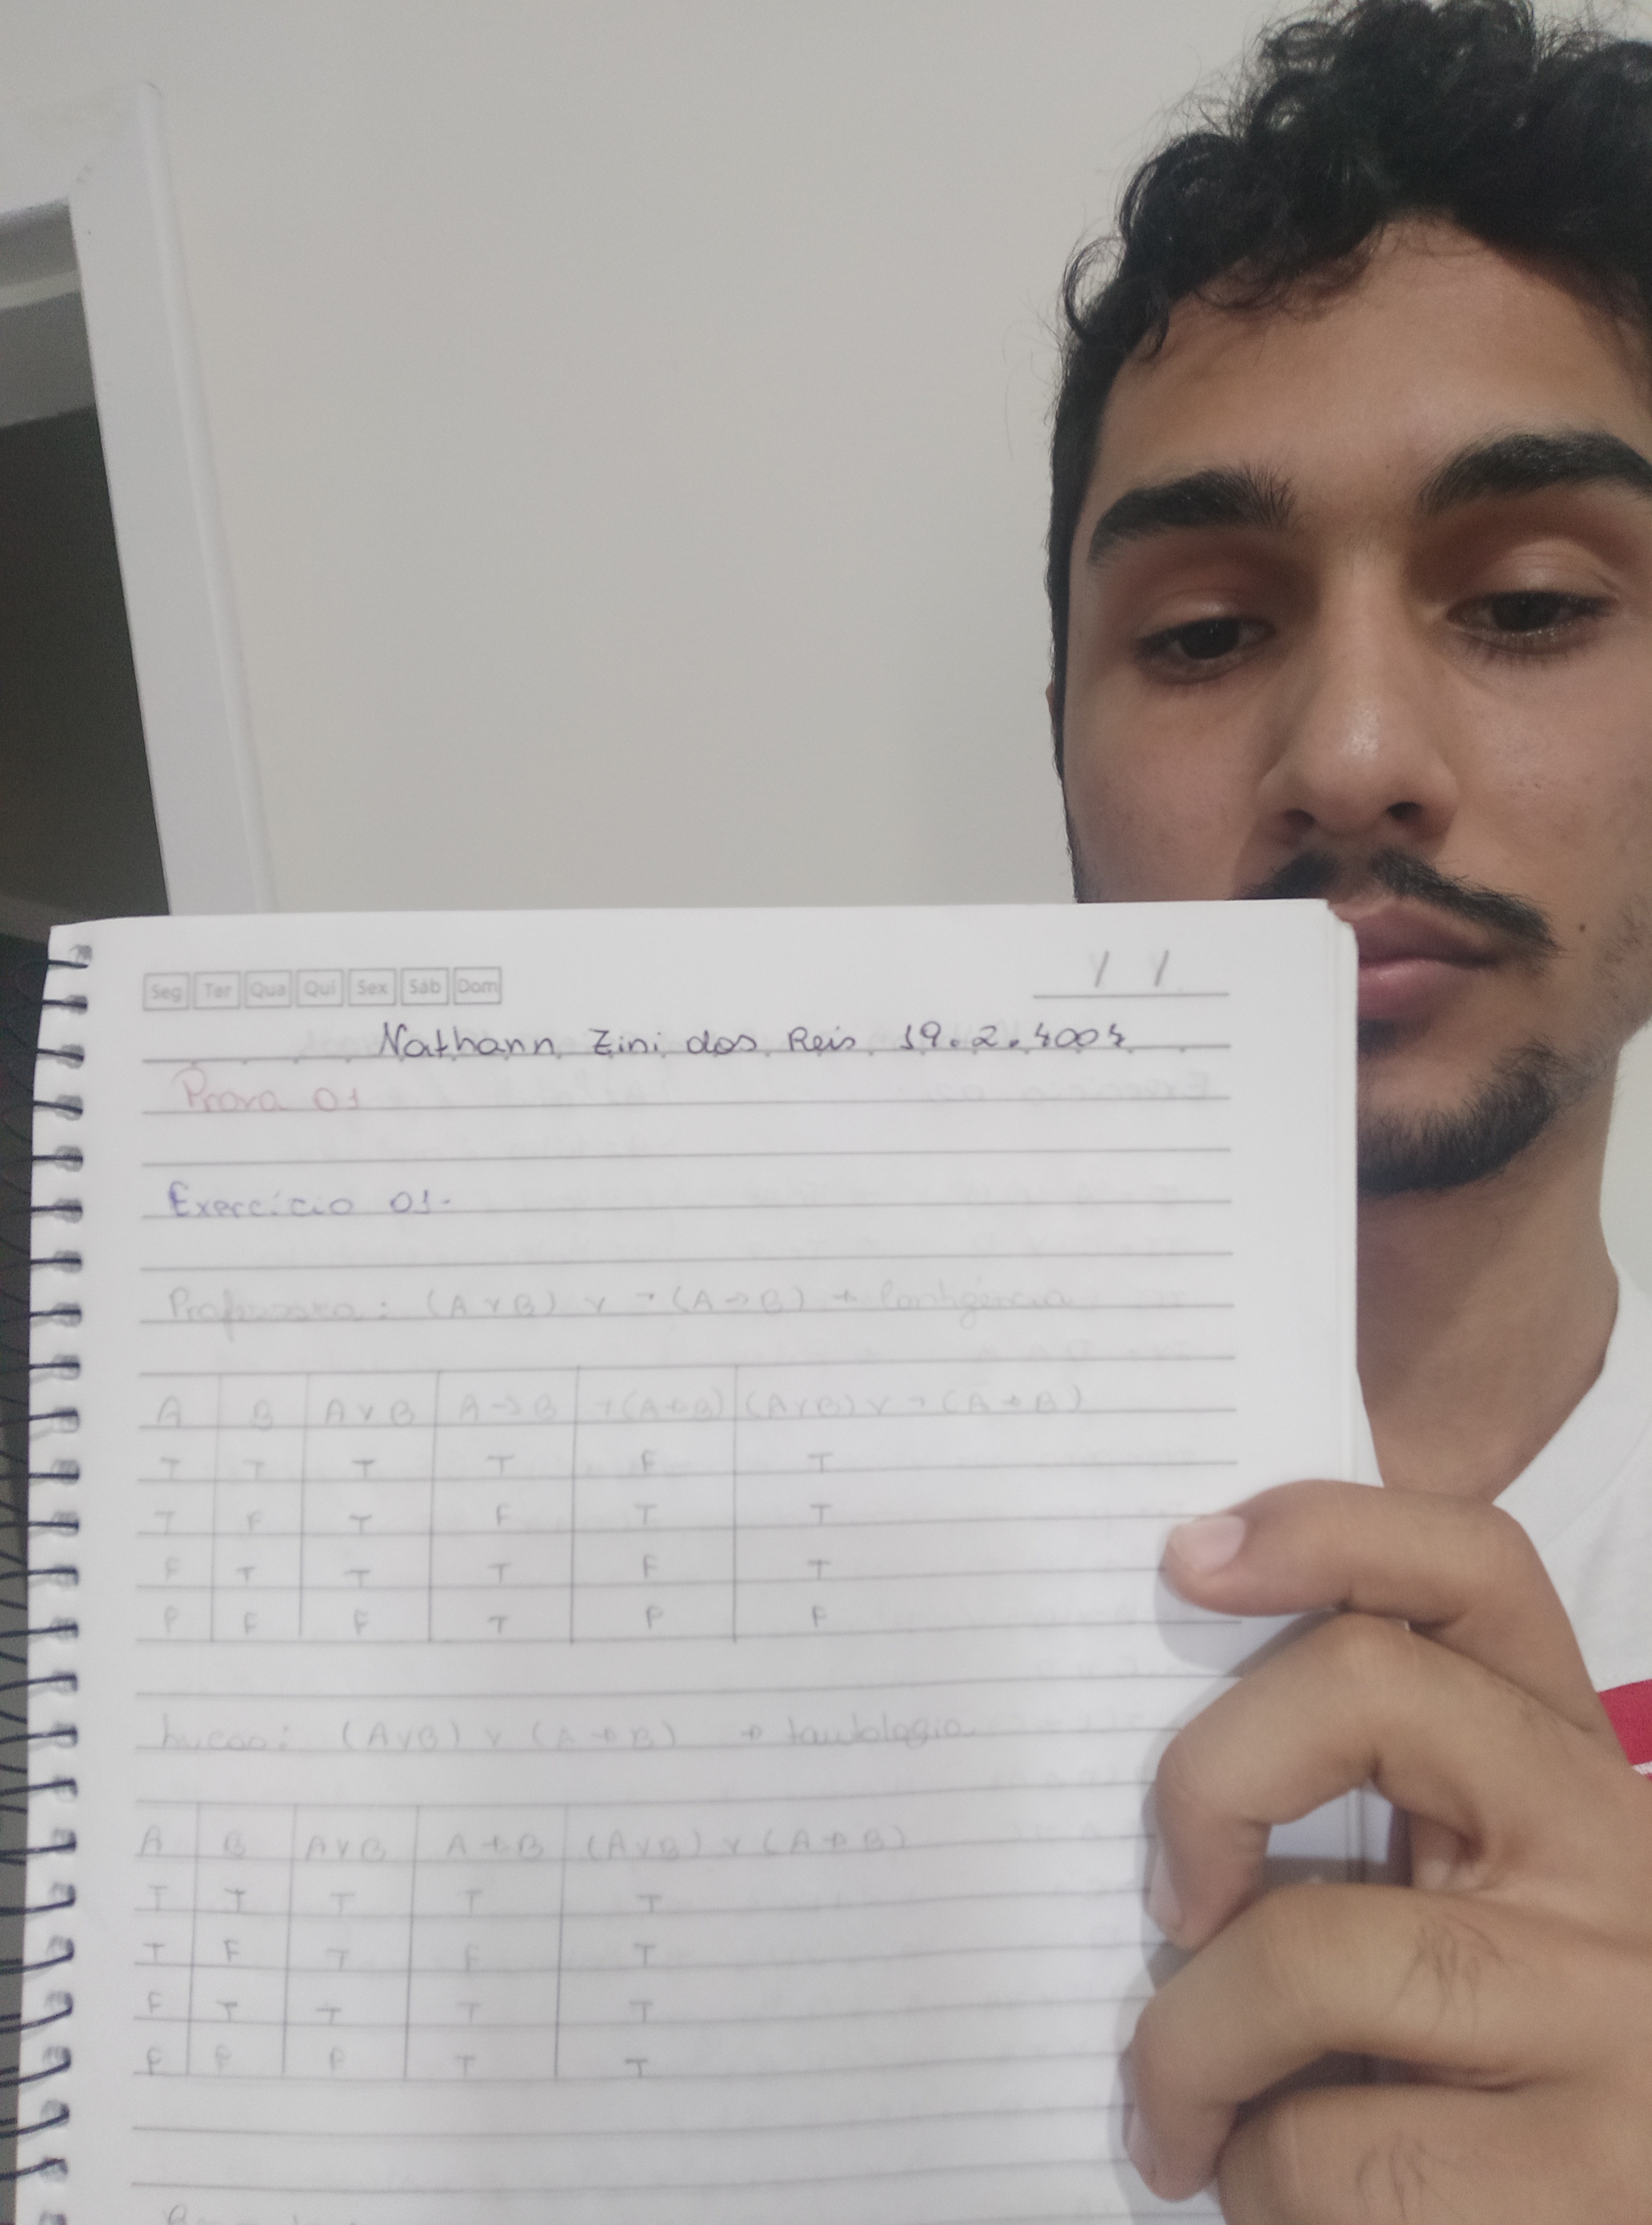 Seg Ter Qua Qui Sex Sáb Dom / /
Nathann Zini dos Reis 19.2.4004
Prova 01
Exercício 01.
Professora: (A ∨ B) ∨ ¬(A → B) → Contigência
A B A ∨ B A → B ¬(A → B) (A ∨ B) ∨ ¬(A → B)
T T T T F T
T F T F T T
F T T T F T
F F F T F F
Lucas: (A ∨ B) ∨ (A → B) → tautologia
A B A ∨ B A → B (A ∨ B) ∨ (A → B)
T T T T T
T F T F T
F T T T T
F F F T T